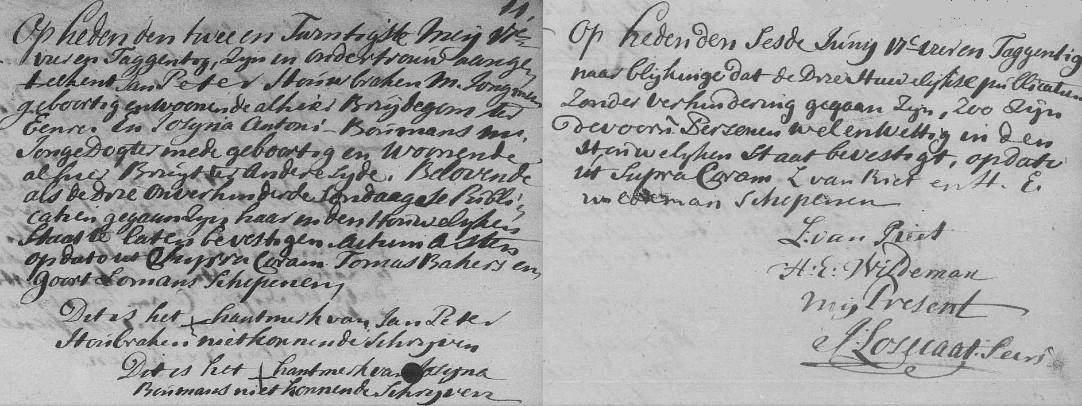 11.
Op heden den twee en Twintigste Meij 17c
vier en Taggentig, Zijn in ondertrouw aange-
teekent Jan Peter Houbraken m. Jongman
geboortig en woonende alhier Bruydegom ter
Eenre. En Josyna Antoni Boumans mi.
Jongedogter mede geboortig en Woonende
alhier Bruyt ter andere syde. Belovende
als de drie onverhinderde Sondaegse Publi-
catien gegaan zijn haar in den Houwelyken
Staat te laten bevestigen Actum Asten
op dato ut Supra Coram Tomas Bakers en
Goort Lomans Schepenen
Dit is het hantmerk van Jan Peter
Houbraken niet konnende Schryven
Dit is het hantmerk van Josyna
Boumans niet konnende Schryven
Op heden den Sesde Juny 17c vier en Taggentig
naar blijkinge dat de drie Houwelijkse publicatien
Zonder verhindering gegaan Zijn, Zoo Zijn
devoors Personen wel en wettig in den
Houwelyken Staat bevestigt, op dato
ut Supra Coram L van Riet en H. E.
wildeman Schepenen
L. van Riet
H: E: Wildeman
mij Present